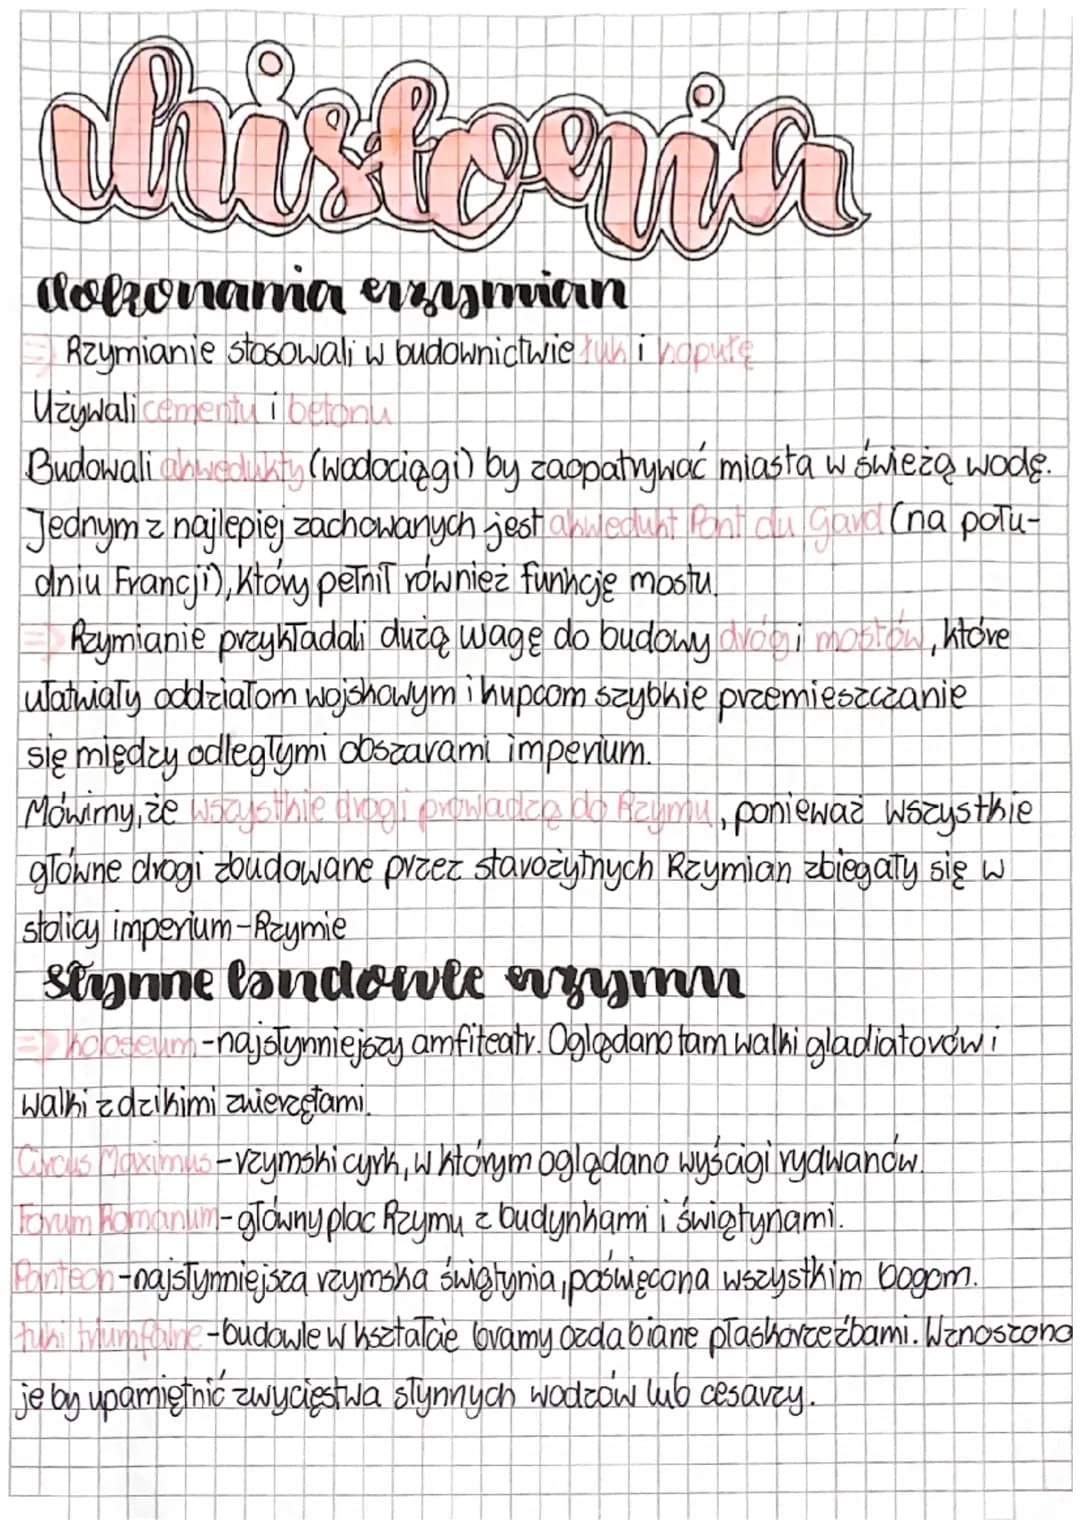 historia
dokonania rzymian
⇒ Rzymianie stosowali w budownictwie łuk i kopułę
Używali cementu i betonu
Budowali akwedukty (wodociągi) by zaopatrywać miasta w świeżą wodę.
Jednym z najlepiej zachowanych jest akwedukt Pont du Gard (na połu-
dniu Francji), który pełnił również funkcję mostu.
⇒ Rzymianie przykładali dużą wagę do budowy dróg i mostów, które
ułatwiały oddziałom wojskowym i kupcom szybkie przemieszczanie
się między odległymi obszarami imperium.
Mówimy, że wszystkie drogi prowadzą do Rzymu, ponieważ wszystkie
główne drogi zbudowane przez starożytnych Rzymian zbiegały się w
stolicy imperium-Rzymie
słynne budowle rzymu
⇒ koloseum-najsłynniejszy amfiteatr. Oglądano tam walki gladiatorów i
walki z dzikimi zwierzętami.
Circus Maximus-rzymski cyrk, w którym oglądano wyścigi rydwanów.
Forum Romanum-główny plac Rzymu z budynkami i świątynami.
Panteon-najsłynniejsza rzymska świątynia, poświęcona wszystkim bogom.
łuki triumfalne-budowle w kształcie bramy ozdabiane płaskorzeźbami. Wznoszono
je by upamiętnić zwycięstwa słynnych wodzów lub cesarzy.